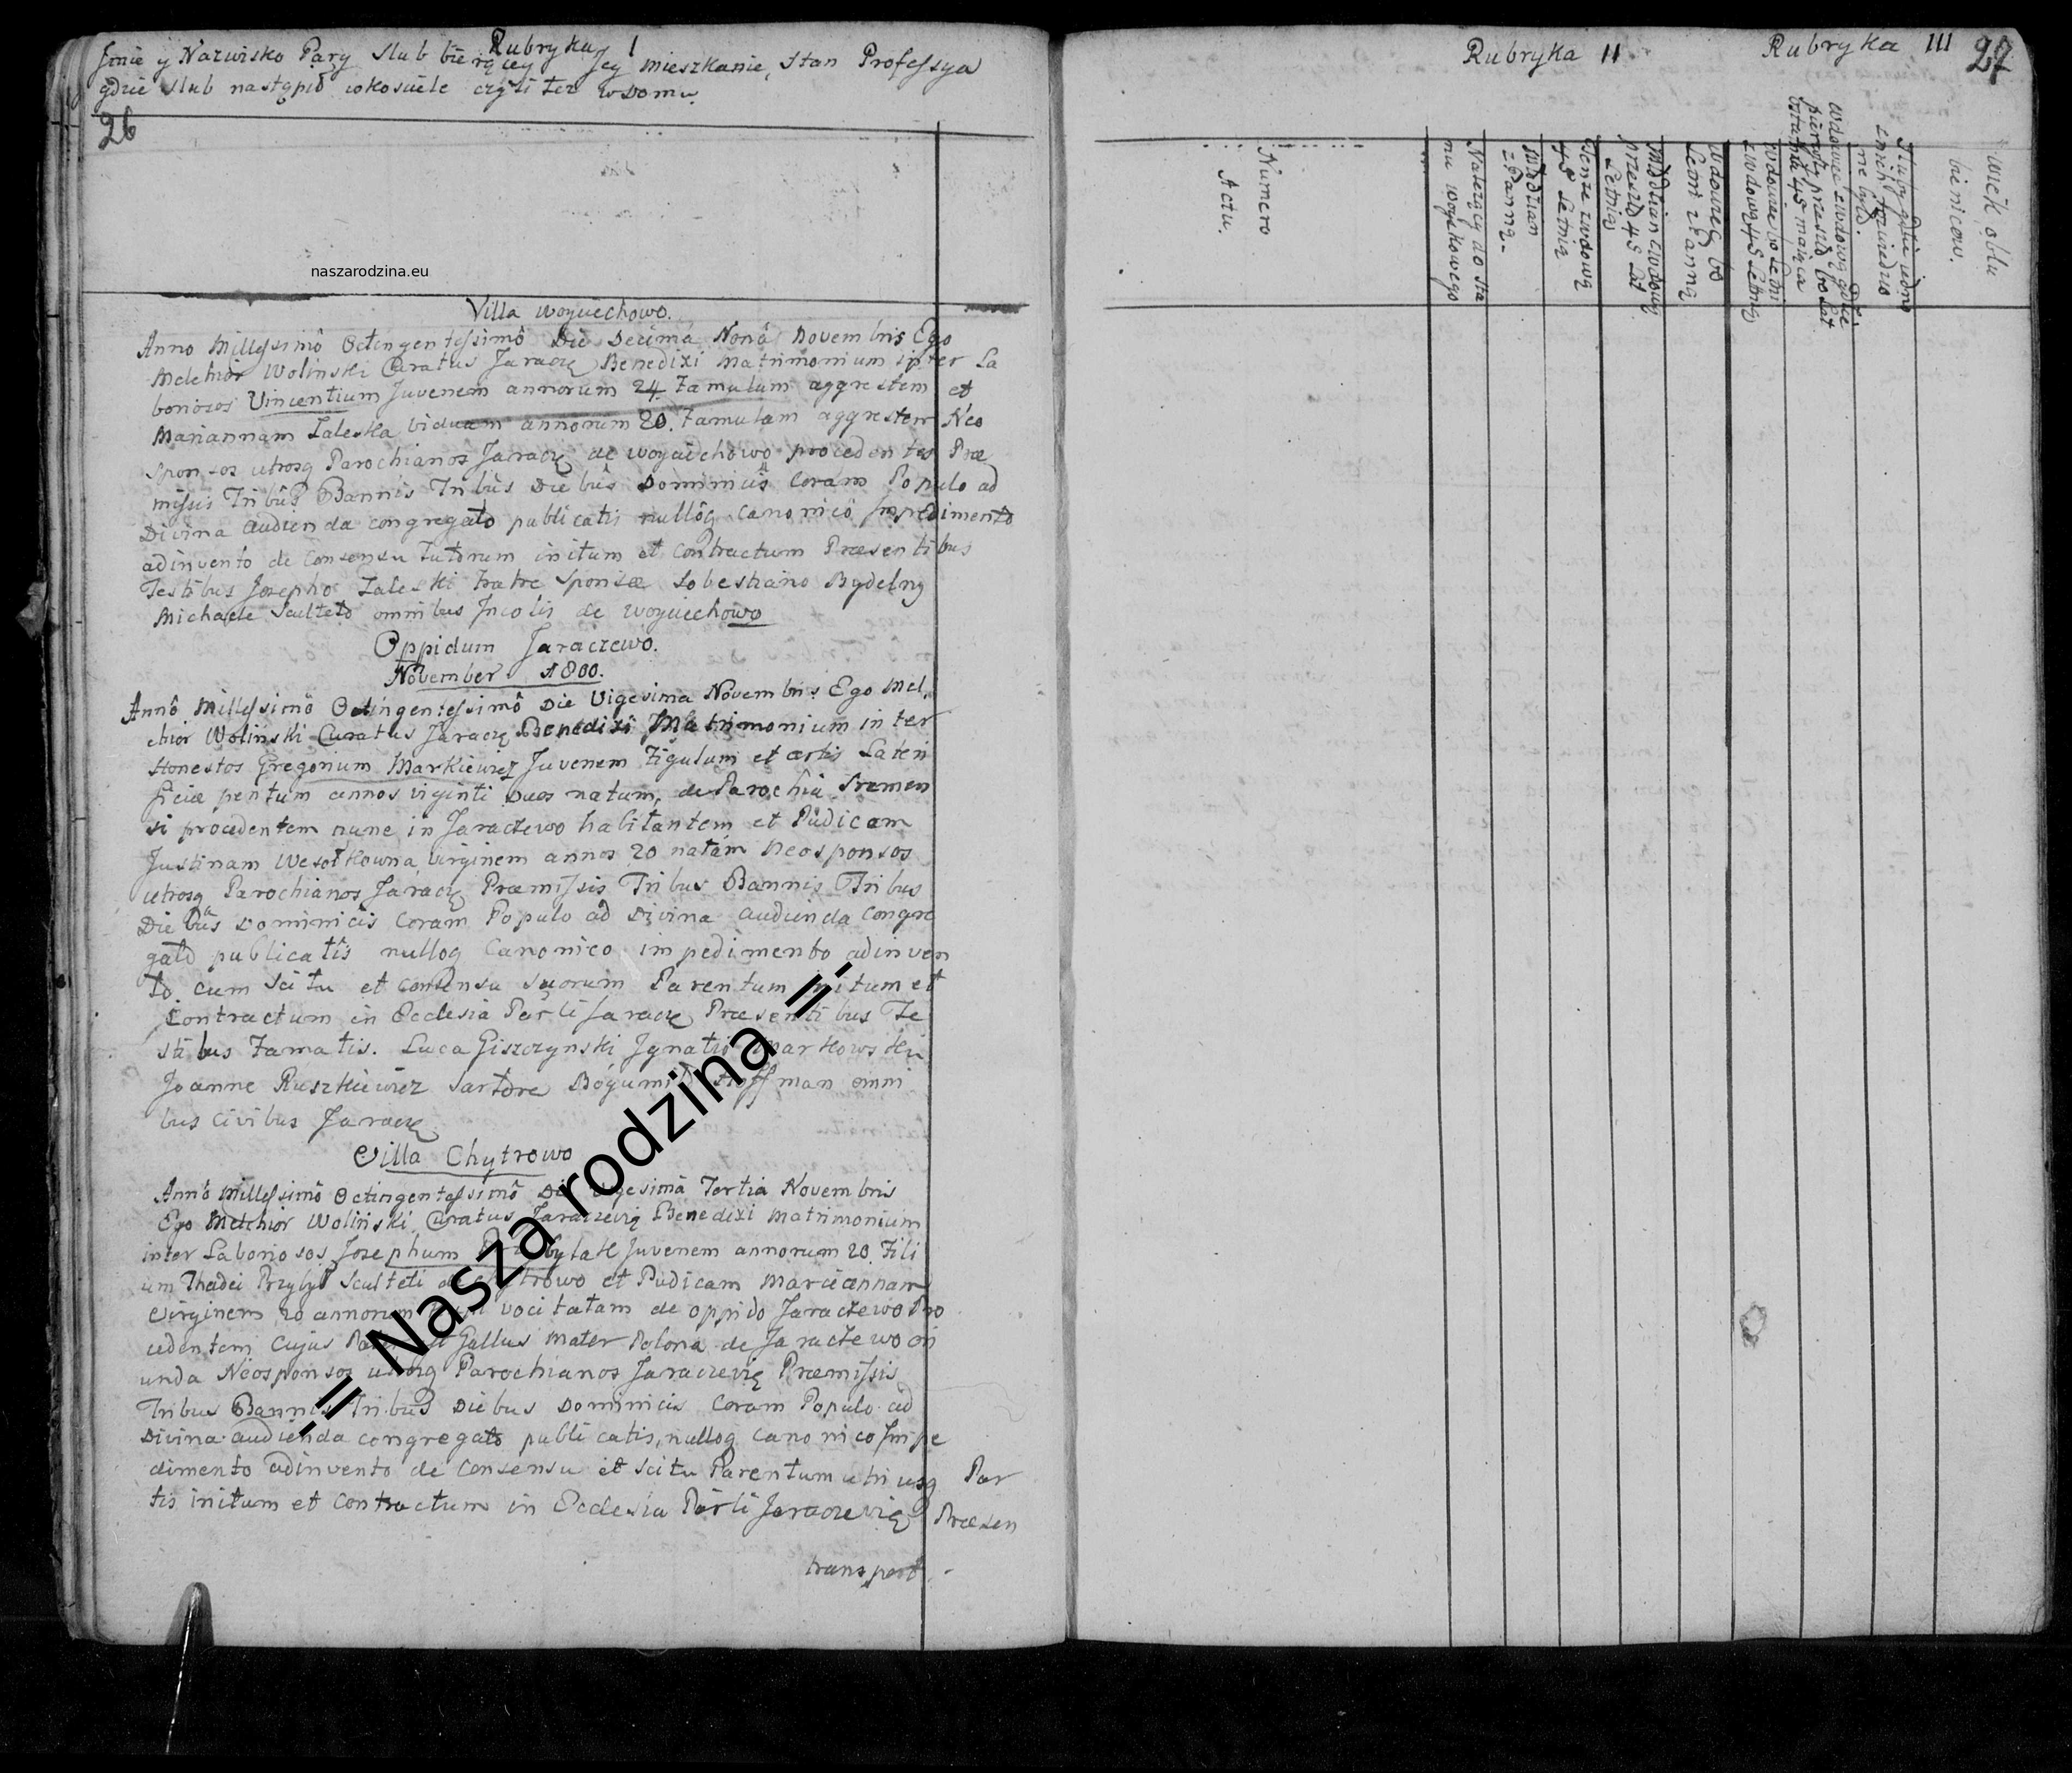 Rubryka I
Jmie y Nazwisko Pary Slub bierącey Jey mieszkanie, Stan Professya
gdzie slub nastąpił w kosciele czyli tez w domu.
26
naszarodzina.eu
Villa Woyciechowo.
Anno Millessimô Octingentessimô Die Decimâ Nonâ Novembris Ego
Melchior Wolinski Curatus Jaracz Benedixi Matrimonium inter La
boriosos Vincentium Juvenem annorum 24 Famulum aggrestem et
Mariannam Zaleska viduam annorum 20. Famulam aggrestem Neo
sponsos utrosq Parochianos Jaracz de Woyciechowo procedentes Præ
missis Tribus Bannis Tribus Diebus Dominicis Coram Populo ad
Divina audienda congregato publicatis nullôq Canonicô Impedimento
adinvento de Consensu Tutorum initum et Contractum Præsentibus
Testibus Josepho Zaleski Fratre Sponsæ Sobestiano Bydelny
Michaele Sculteto omnibus Incolis de Woyciechowo
Oppidum Jaraczewo.
November 1800.
Annô Millessimô Octingentessimô Die Vigesima Novembris Ego Mel
chior Wolinski Curatus Jaracz Benedixi Matrimonium inter
Honestos Gregorium Markiewicz Juvenem Figulum et artis Lateri
ficiæ peritum annos viginti Duos natum, de Parochia Sremen
si procedentem nunc in Jaraczewo habitantem et Pudicam
Justinam Wesołkowna virginem annos 20 natam Neosponsos
utrosq Parochianos Jaracz Præmissis Tribus Bannis Tribus
Diebus Dominicis Coram Populo ad Divina audienda Congre
gato publicatis nulloq Canonico impedimento adinven
to. cum Scitu et Consensu suorum Parentum initum et
Contractum in Ecclesia Parli Jaracz Præsentibus Te
stibus Famatis. Luca Giszczynski Jgnatio Markowski
Joanne Ruszkiewicz Sartore Bogumił Hoffman omni
bus Civibus Jaracz
Villa Chytrowo
Annô Millessimô Octingentessimô Die Vigesimâ Tertia Novembris
Ego Melchior Wolinski Curatus Jaraczevię Benedixi Matrimonium
inter Laboriosos Josephum Juvenem annorum 20 Fili
um Thadei Przybył Sculteti de Chytrowo et Pudicam Mariannam
Virginem 20 annorum vocitatam de oppido Jaraczewo Pro
cedentem Cujus Pater est Gallus Mater Polona de Jaraczewo ori
unda Neosponsos utrosq Parochianos Jaraczevię Præmissis
Tribus Bannis Tribus Diebus Dominicis Coram Populo ad
Divina audienda congregato publicatis, nulloq Canonico Impe
dimento adinvento de Consensu et scitu Parentum utriusq Par
tis initum et Contractum in Ecclesia Parli Jaraczevię Præsen
transport
-= Nasza rodzina =-
Rubryka II
Rubryka III
27
Numero
Actu.
Nalezący do sta
nu woyskowego
Młodzian
z Panną
tenze z wdową
45 Letnią
Młodzian z wdową
przeszło 45 Lat
Letnią
Wdowiec 60
Letni z Panną
Wdowiec 60 Letni
z wdową 45 Letnią
Wdowiec z wdową gdzie
pierwszy przeszło 60 Lat
ostatnia 45 mająca
Sluby gdzie jedno
z nich
nie było.
Wiek oblu
bienicow.